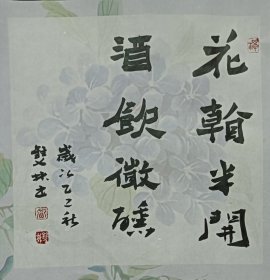 花翰半開
酒飲微醺
歲次乙巳秋